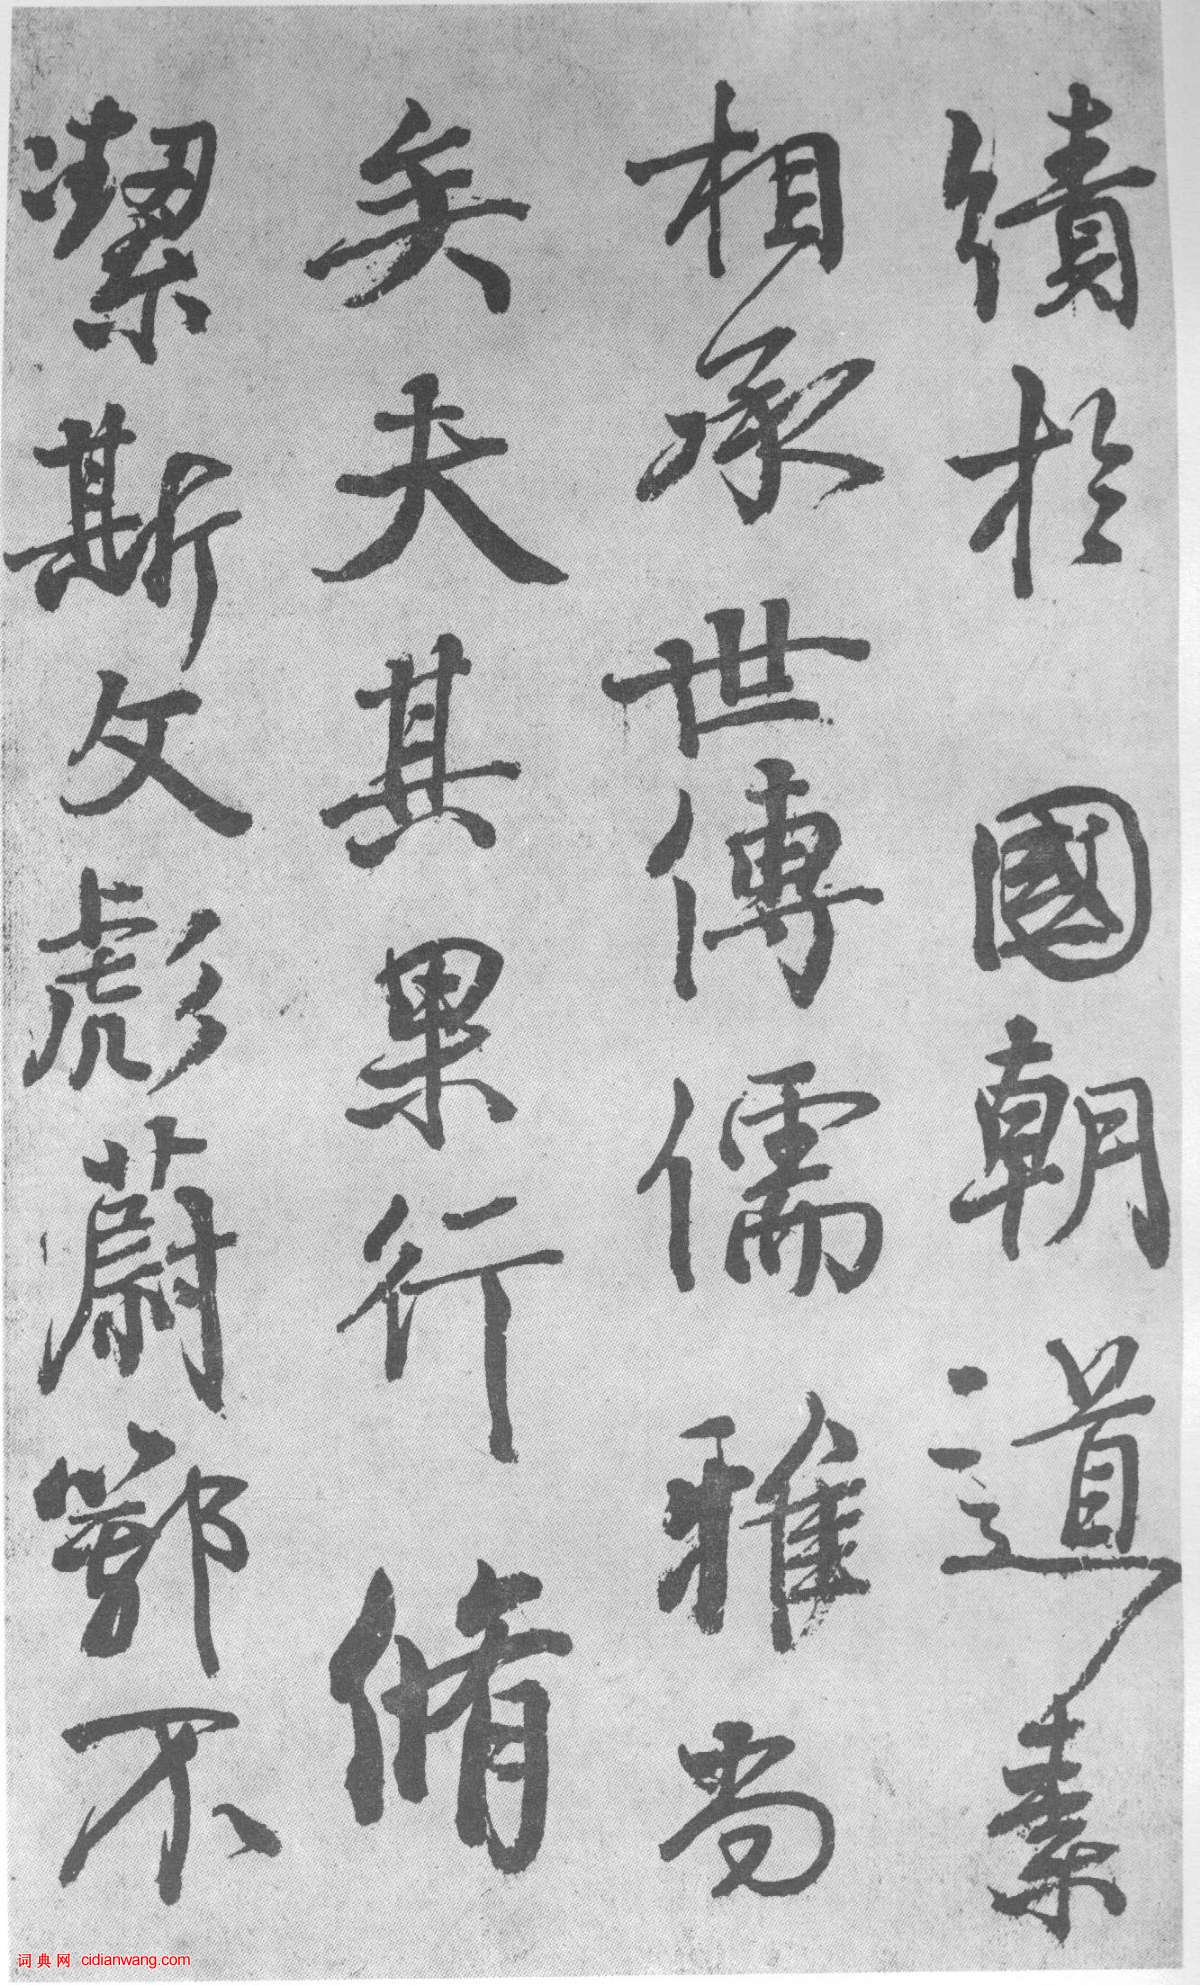 績於國朝道素
相承世傳儒雅尚
矣夫其果行脩
潔斯文彪蔚鄂不
词典网 cidianwang.com